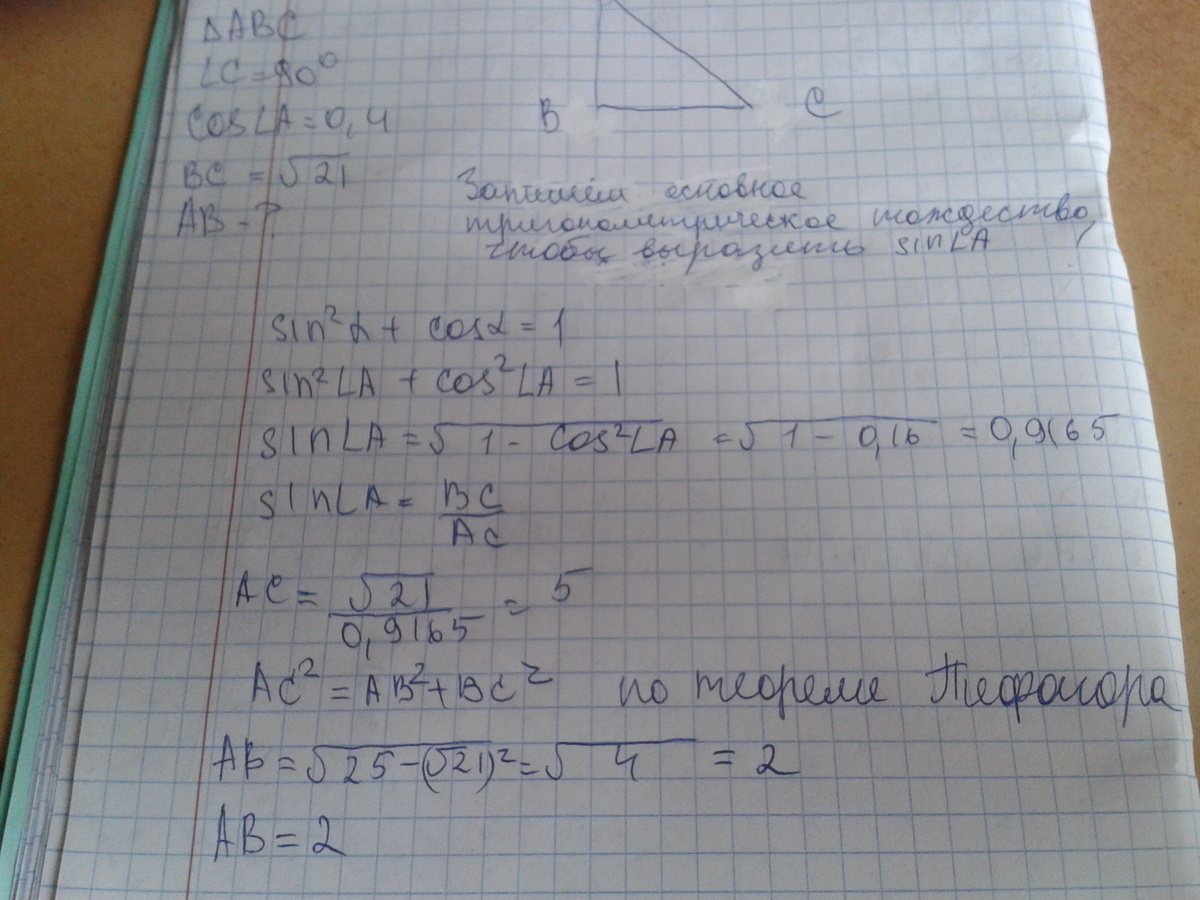 ΔABC
∠C=90°
cos∠A=0,4
BC = √21
AB - ?
B
C
Запишем основное
тригонометрическое тождество,
чтобы выразить sin∠A
sin²α + cosα = 1
sin²∠A + cos²∠A = 1
sin∠A = √1 - cos²∠A = √1 - 0,16 = 0,9165
sin∠A = BC/AC
AC = √21/0,9165 = 5
AC² = AB² + BC² по теореме Пефагора
AB = √25-(√21)² = √4 = 2
AB = 2